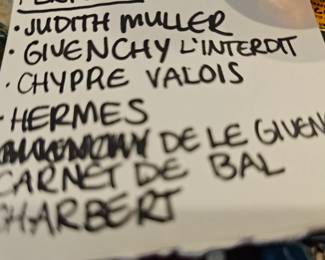 · JUDITH MULLER
· GIVENCHY L'INTERDIT
· CHYPRE VALOIS
· HERMES
DE LE GIVEN
CARNET DE BAL
CHARBERT